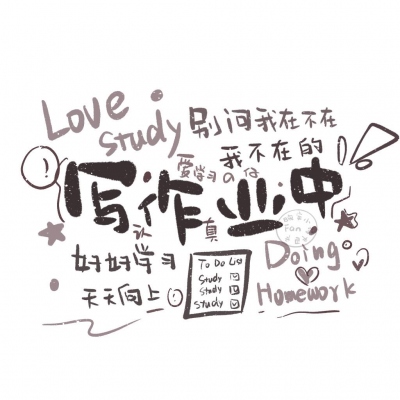 Love
Study
别问我在在不在
我不在的
爱学习の
写作业中
认真
好好学习
天天向上
To Do List
Study
Study
Study
Doing
Homework
Fan